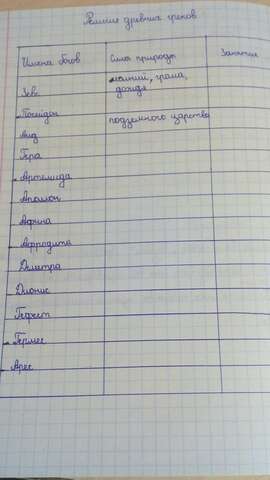 Религия древних греков
Имена богов Сила природы Занятие
Зевс молний, грома,
дождя
Посейдон
Аид подземного царства
Гера
Артемида
Аполлон
Афина
Афродита
Деметра
Дионис
Гефест
Гермес
Арес